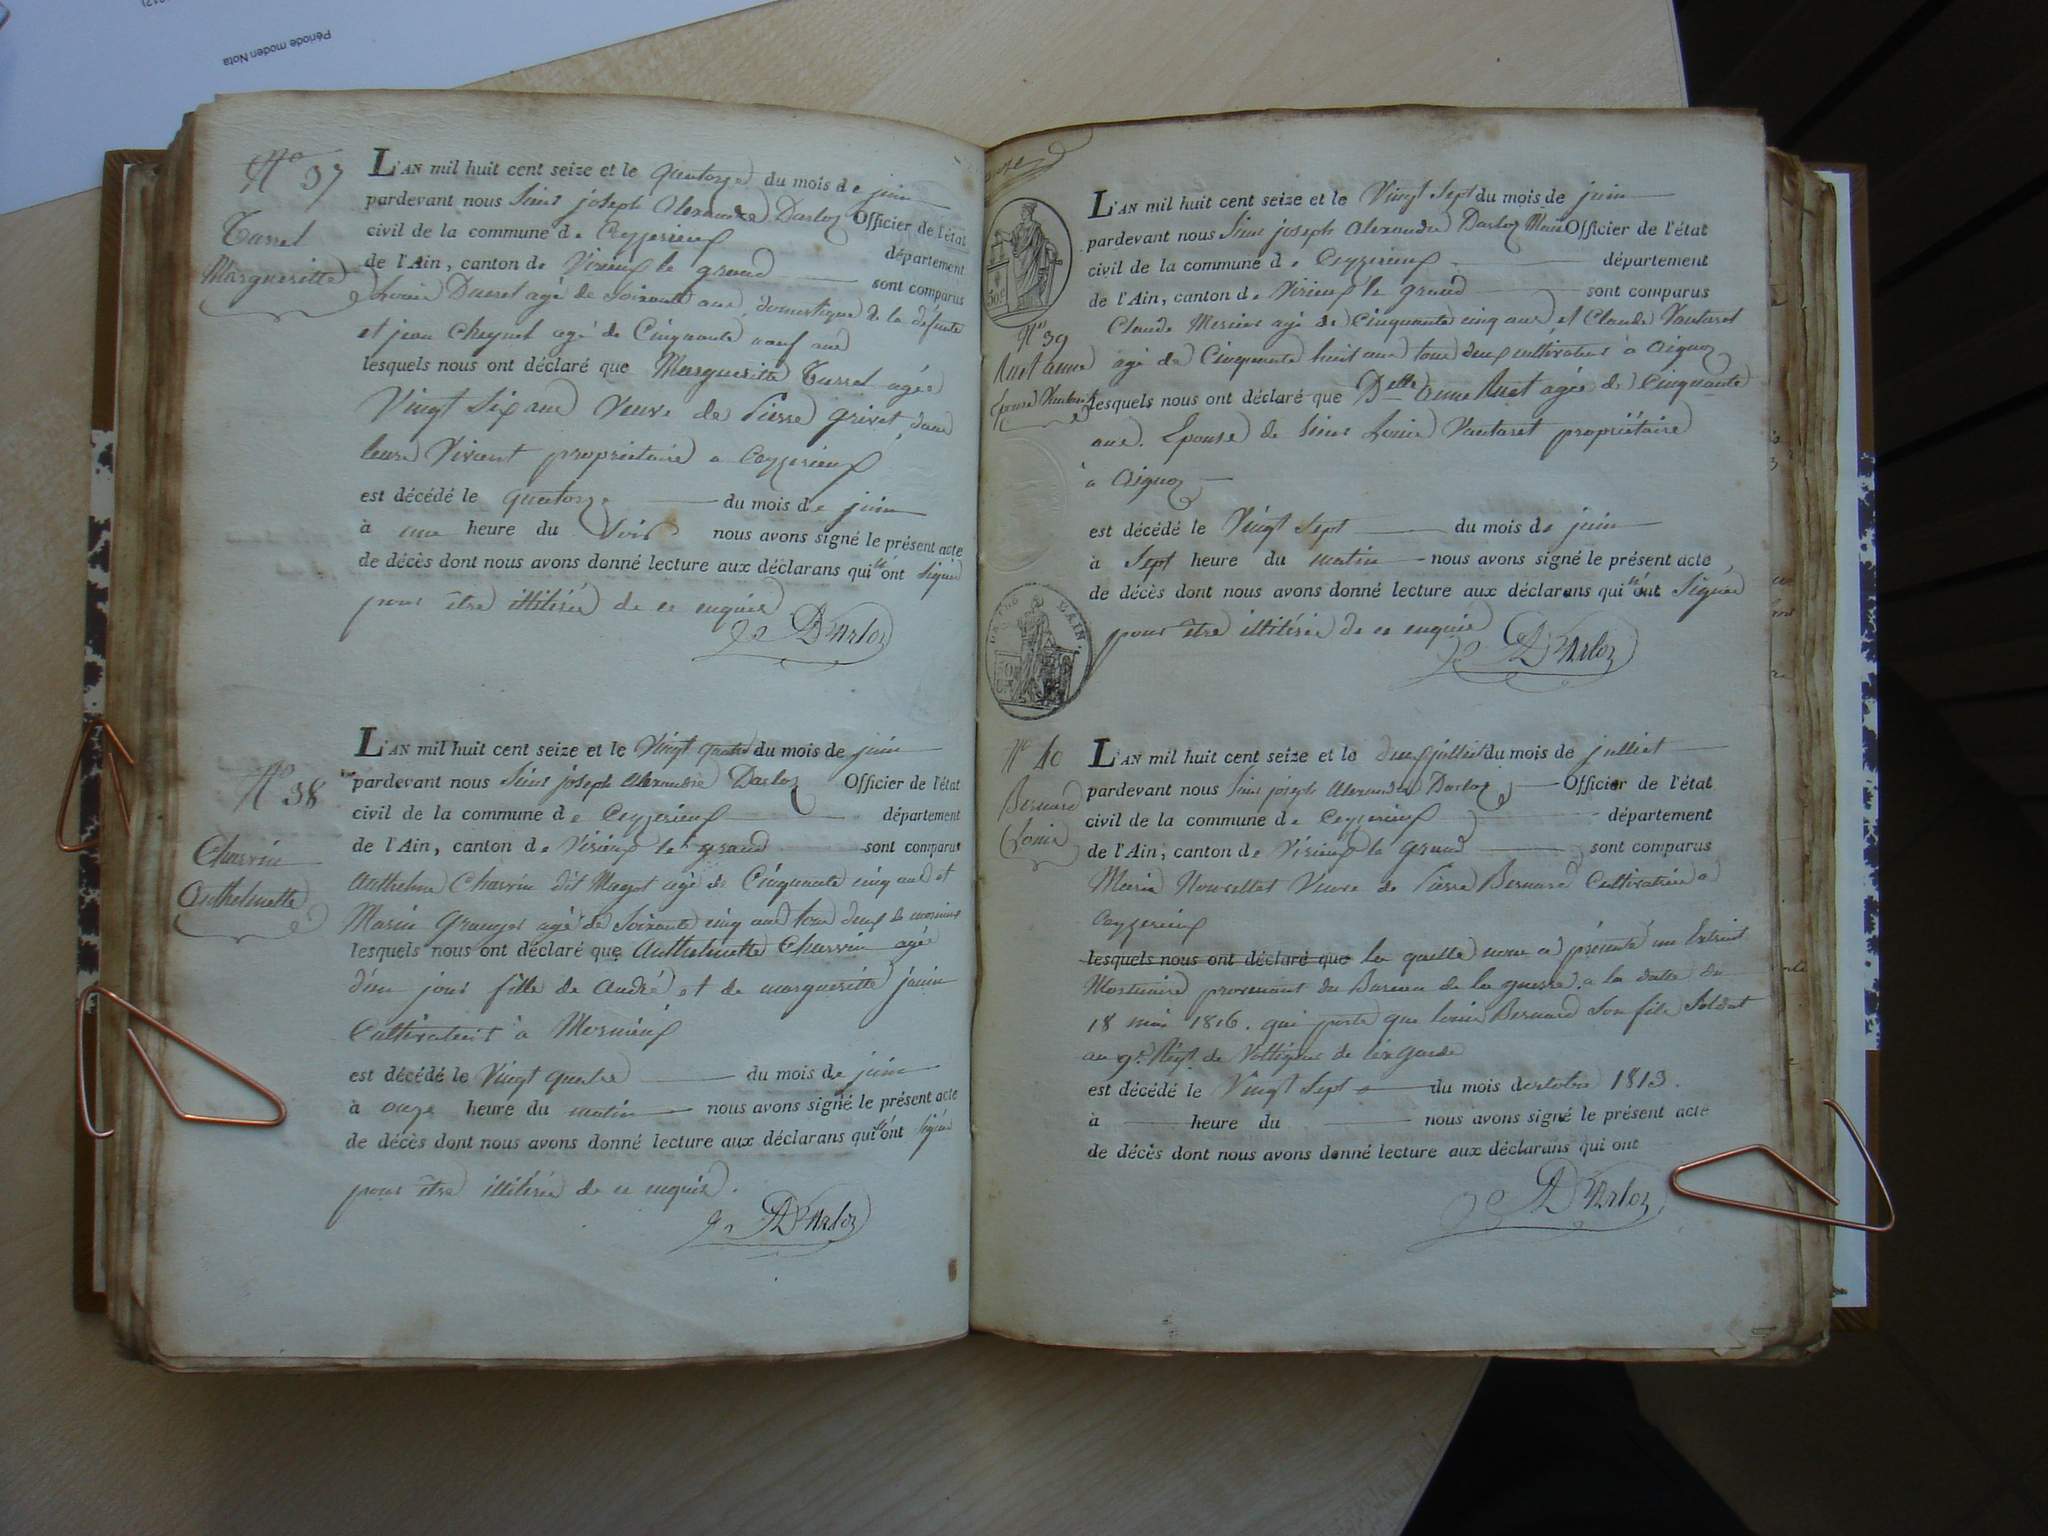 Période moden Nota
N° 37
Turrel
Margueritte
L'AN mil huit cent seize et le quatorze du mois de juin
pardevant nous Sieur joseph Alexandre Darloz Officier de l'état
civil de la commune de Ceyzerieux département
de l'Ain, canton de Virieux le grand sont comparus
Louis Ducret agé de soixante ans, domestique de la défunte
et jean Cheynel agé de Cinquante neuf ans
lesquels nous ont déclaré que Margueritte Turrel agée
Vingt Six ans Veuve de Pierre grivet dans
leurs Vivant propriétaire a Ceyzerieux
est décédé le quatorze du mois de juin
à une heure du Soir nous avons signé le présent acte
de décès dont nous avons donné lecture aux déclarans qui n'ont Signé
pour être illitérés de ce enquis.
D'Arloz
N° 38
Charvin
Anthelmette
L'AN mil huit cent seize et le Vingt quatre du mois de juin
pardevant nous Sieur joseph Alexandre Darloz Officier de l'état
civil de la commune de Ceyzerieux département
de l'Ain, canton de Virieux le grand sont comparus
Anthelme Charvin dit Magot agé de Cinquante cinq ans et
Marin Granger agé de Soixante cinq ans tous deux de mornieux
lesquels nous ont déclaré que Anthelmette Charvin agée
d'un jour fille de André et de margueritte janin
Cultivateurs à Mornieux
est décédé le Vingt quatre du mois de juin
à onze heure du matin nous avons signé le présent acte
de décès dont nous avons donné lecture aux déclarans qui n'ont Signé
pour être illitérés de ce enquis.
D'Arloz
50c
N° 39
Ruet anne
Epouse Vautaret
L'AN mil huit cent seize et le Vingt Sept du mois de juin
pardevant nous Sieur joseph Alexandre Darloz Maire Officier de l'état
civil de la commune de Ceyzerieux département
de l'Ain, canton de Virieux le grand sont comparus
Claude Mercier agé de Cinquante cinq ans et Claude Vautaret
agé de Cinquante huit ans tous deux cultivateurs à Aignoz
lesquels nous ont déclaré que Delle Anne Ruet agée de Cinquante
ans. Epouse de Sieur Louis Vautaret propriétaire
à Aignoz
est décédé le Vingt Sept du mois de juin
à Sept heure du matin nous avons signé le présent acte
de décès dont nous avons donné lecture aux déclarans qui n'ont Signé
pour être illitérés de ce enquis
D'Arloz
N° 40
Bernard
Louis
L'AN mil huit cent seize et le deux juillet du mois de juillet
pardevant nous Sieur joseph Alexandre Darloz Officier de l'état
civil de la commune de Ceyzerieux département
de l'Ain, canton de Virieux le grand sont comparus
Marie Veuve de Pierre Bernard Cultivatrice a
Ceyzerieux
lesquels nous ont déclaré que la quelle nous a présenté un Extrait
Mortuaire provenant du Bureau de la guerre, a la datte du
18 mai 1816. qui porte que louis Bernard Son fils Soldat
au 9e Régt de Voltigeurs de l'ex garde
est décédé le Vingt Sept du mois doctobre 1813.
à heure du nous avons signé le présent acte
de décès dont nous avons donné lecture aux déclarans qui ont
D'Arloz